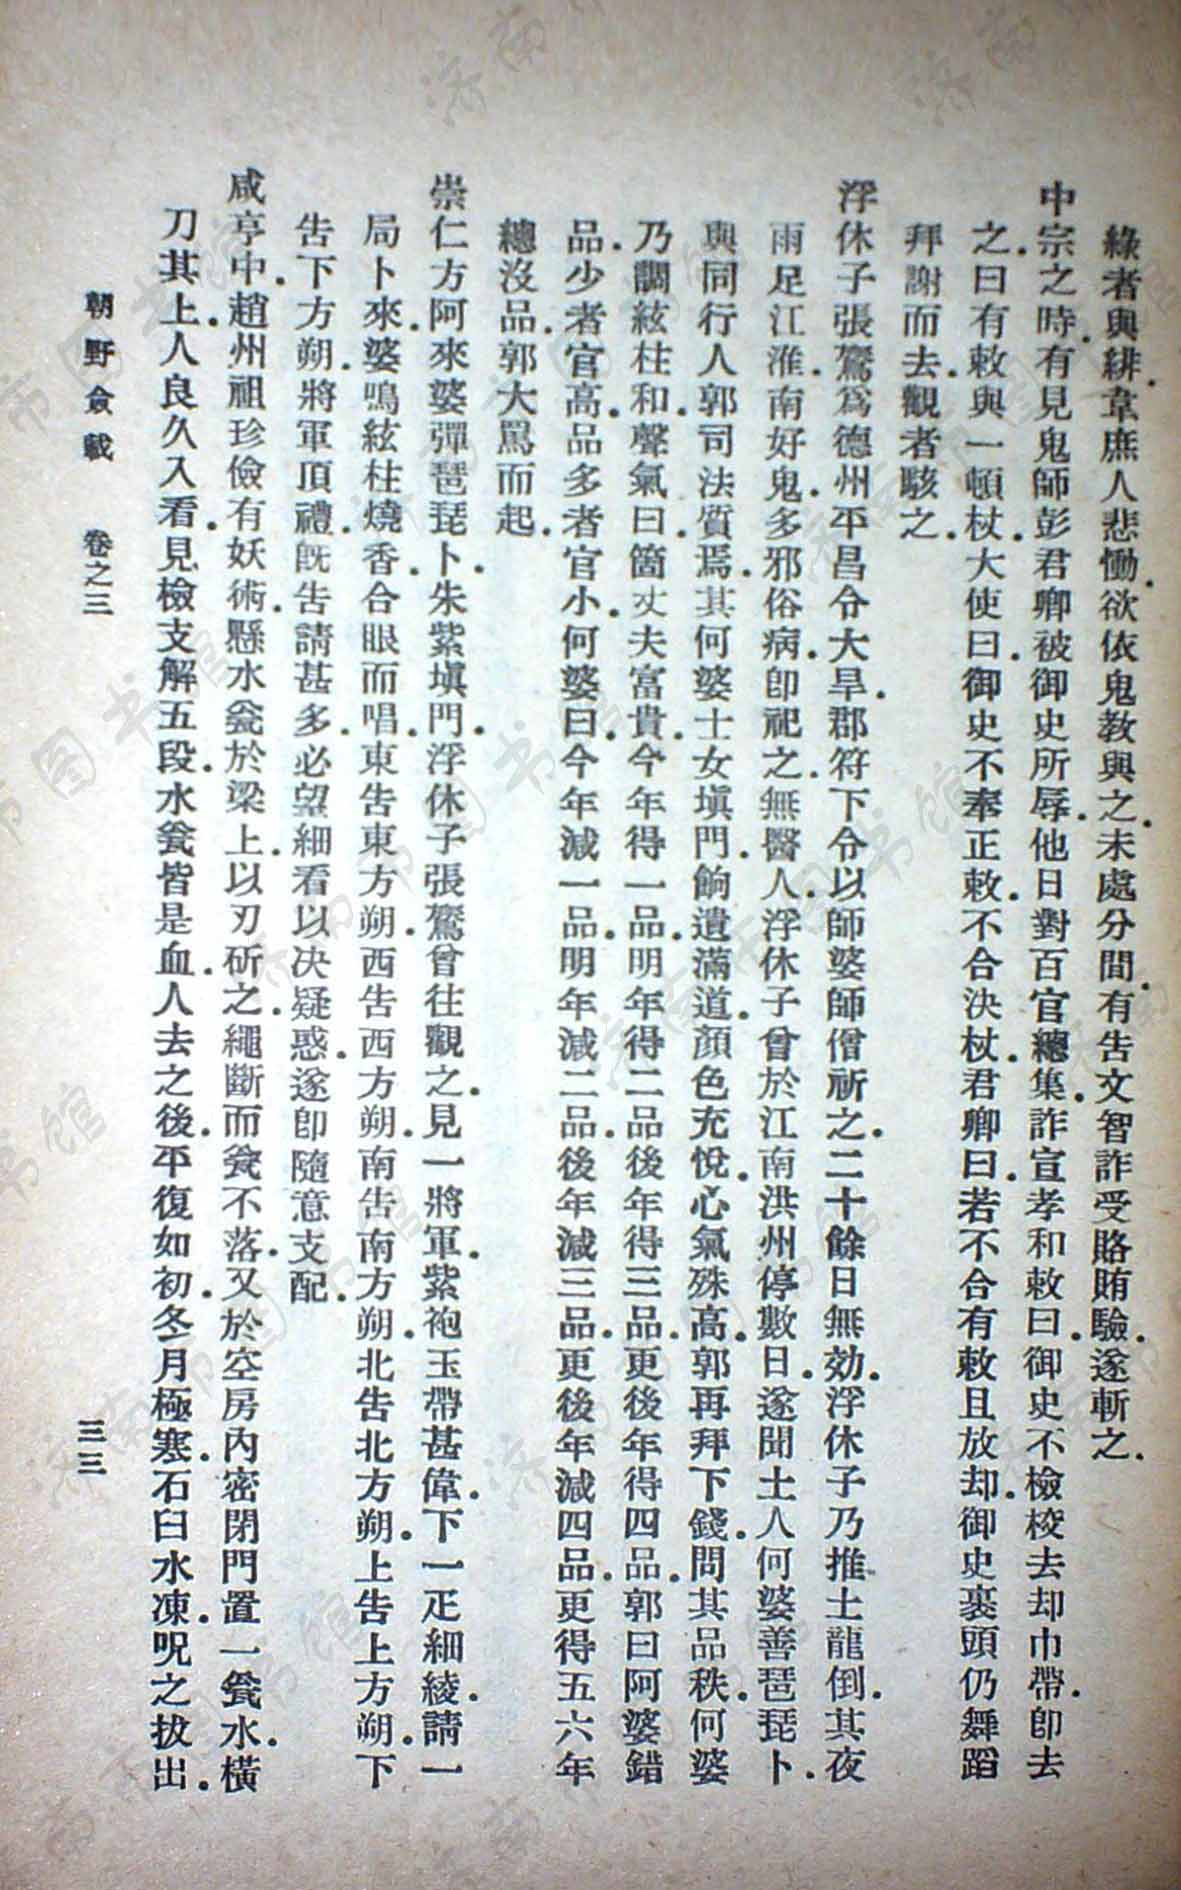 綠者與緋.韋庶人悲慟.欲依鬼教與之.未處分間.有告文智詐受賂賄驗.遂斬之.
中宗之時.有見鬼師彭君卿被御史所辱.他日對百官總集.詐宣孝和敕曰.御史不檢校.去却巾帶.卽去
之.曰有敕與一頓杖.大使曰.御史不奉正敕.不合決杖.君卿曰.若不合有敕且放却.御史裹頭仍舞蹈
拜謝而去.觀者駭之.
浮休子張鷟爲德州平昌令大旱.郡符下令以師婆師僧祈之.二十餘日無効.浮休子乃推土龍倒.其夜
雨足江淮.南好鬼.多邪俗病.卽祀之.無醫人.浮休子曾於江南洪州停數日.遂聞土人何婆善琵琶卜.
與同行人郭司法質焉.其何婆士女塡門.餉遺滿道.顏色充悅.心氣殊高.郭再拜下錢.問其品秩.何婆
乃調絃柱和.聲氣曰.箇丈夫富貴.今年得一品.明年得二品.後年得三品.更後年得四品.郭曰阿婆錯
品.少者官高.品多者官小.何婆曰.今年減一品.明年減二品.後年減三品.更後年減四品.更得五六年
總沒品.郭大罵而起.
崇仁方阿來婆彈琵琶卜.朱紫塡門.浮休子張鷟曾往觀之.見一將軍.紫袍玉帶甚偉.下一疋細綾.請一
局卜來.婆鳴絃柱燒香.合眼而唱.東告東方朔.西告西方朔.南告南方朔.北告北方朔.上告上方朔.下
告下方朔.將軍頂禮.旣告請甚多.必望細看以决疑惑.遂卽隨意支配.
咸亨中.趙州祖珍儉有妖術.懸水瓮於梁上.以刃斫之.繩斷而瓮不落.又於空房內密閉門置一瓮水.橫
刀其上.人良久入看.見儉支解五段.水瓮皆是血.人去之後.平復如初.冬月極寒.石臼水凍.呪之拔出.
朝野僉載 卷之三 三三
濟南市图书馆